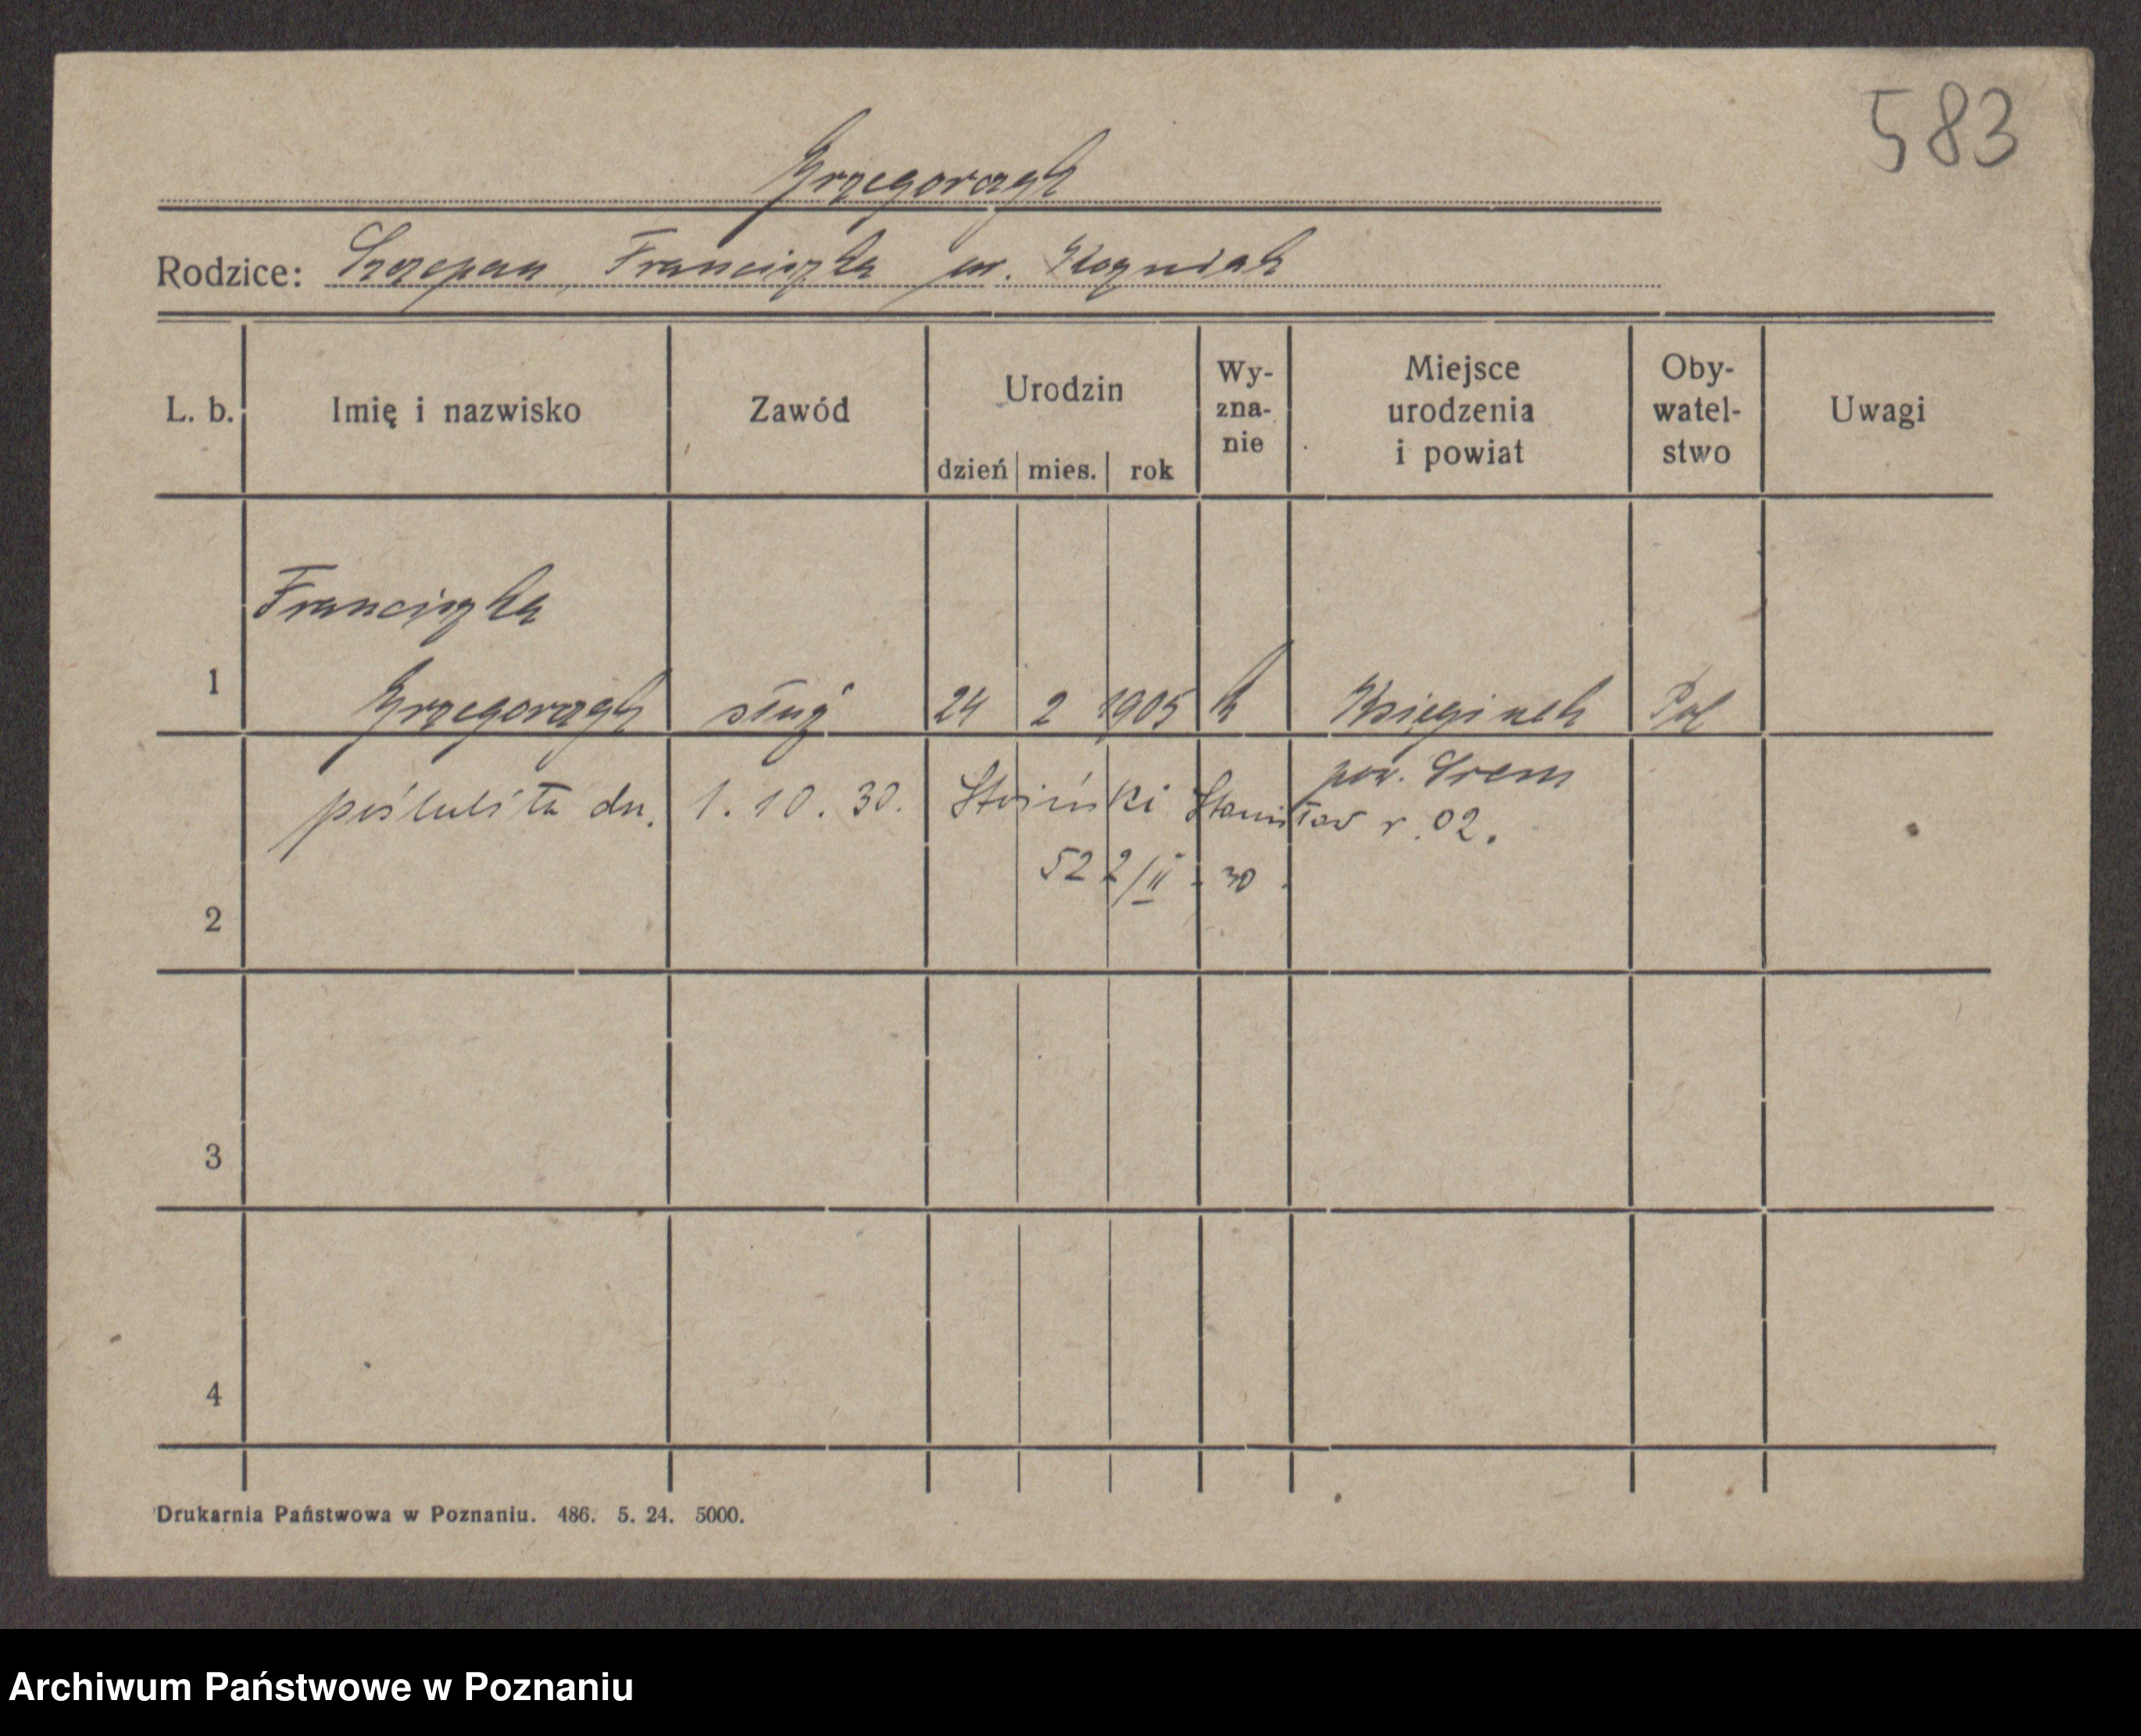 583
Grzegorzyk
Rodzice: Szczepan, Franciszka ur. Woźniak
L. b. Imię i nazwisko Zawód Urodzin dzień mies. rok Wy-zna-nie Miejsce urodzenia i powiat Oby-watel-stwo Uwagi
Franciszka
1 Grzegorzyk służ 24 2 1905 k Księginek Pol
pow. Śrem
poślubiła dn. 1. 10. 30. Stoiński Stanisław r. 02.
522/II - 30.
2
3
4
Drukarnia Państwowa w Poznaniu. 486. 5. 24. 5000.
Archiwum Państwowe w Poznaniu